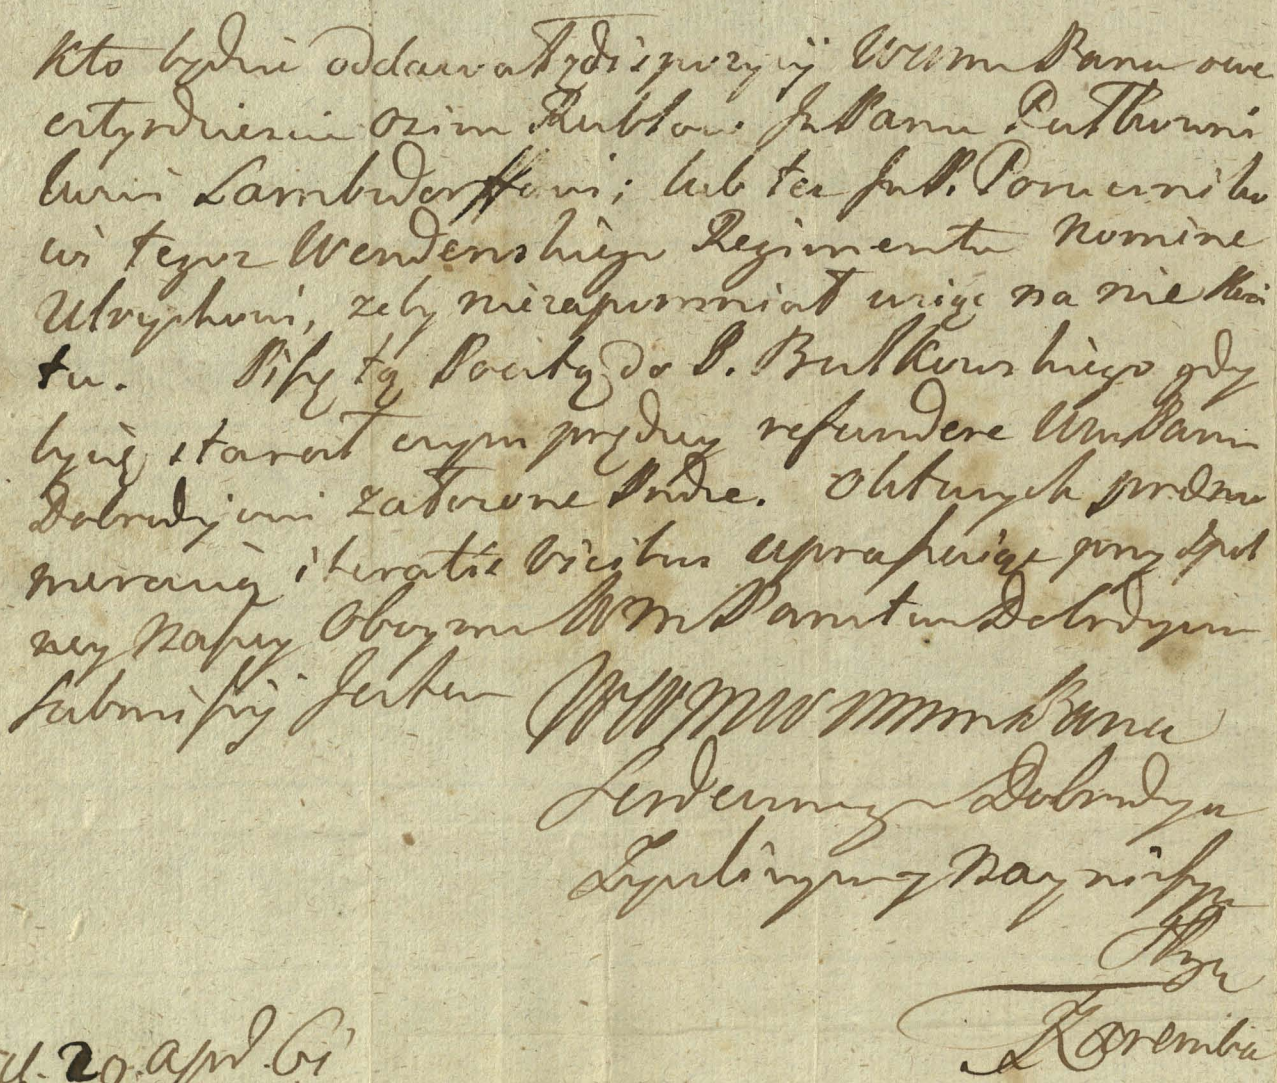 Kto będzie oddawał z dispozycyi WWmm Pana owe
cztyrdzieści osim Rublow Jm Panu Pułkowni
kowi Lambsdorffowi; lub też JmP. Poruczniko
wi tegoz Wendenskiego Regimentu Nomine
Ulrychowi, zeby niezapomniał wziąć na nie Kwi
tu. Piszę tą Pocztą do P. Bułkowskiego gdy
by się starał czym prędzey refundere WmPanu
Dobrodziejowi załozone
iteratis vicibus upraszaiąc przy spol
ney naszey Oboyma WmPanstwu Dobrodzieystwu
submissyi Jestem
Pana
Serdecznego Dobrodzieja
Zyczliwym y Nayniższym
Sługą
Zaremba
d. 20. april. 61